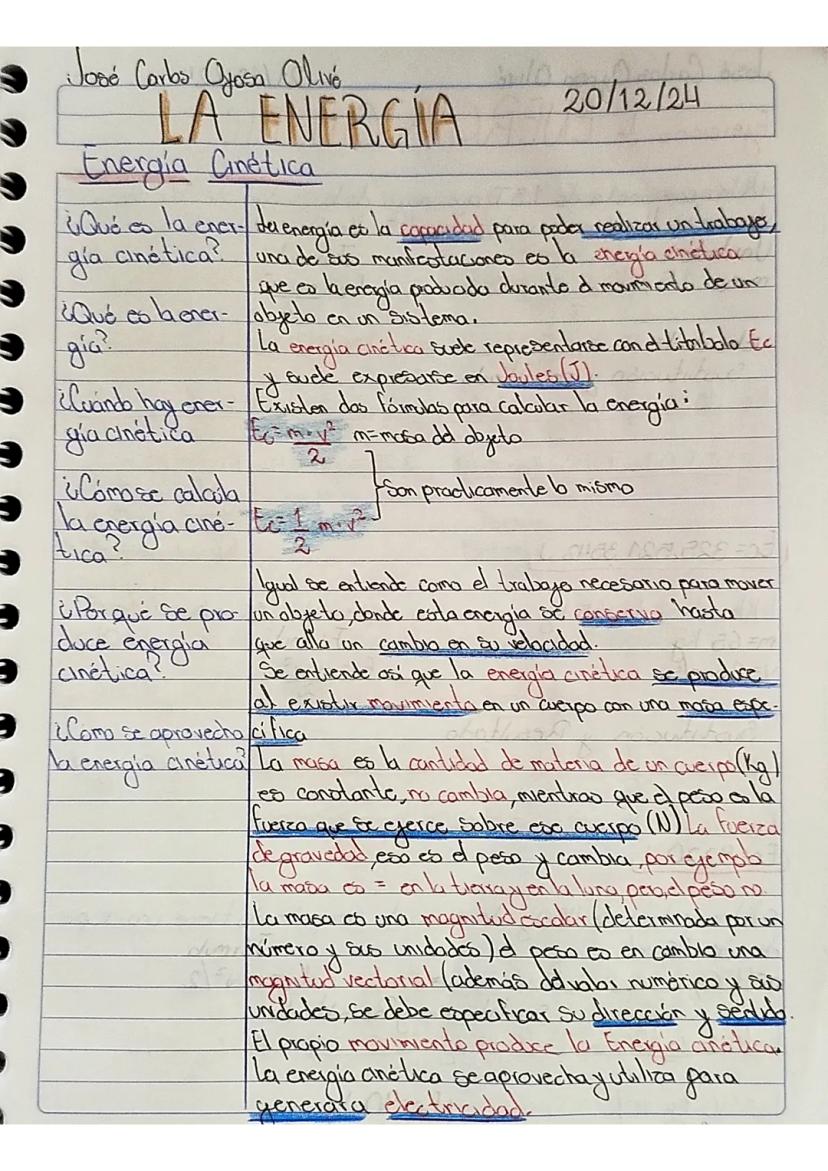 José Carlos Oyosa Olivé
LA ENERGÍA
20/12/24
Energía Cinética
¿Qué es la ener-
gía cinética?
¿Qué es la ener-
gía?
¿Cuándo hay ener-
gía cinética
¿Cómo se calcula
la energía ciné-
tica?
¿Por qué se pro
duce energía
cinética?
¿Cómo se aprovecha
la energía cinética?
energía es la capacidad para poder realizar un trabajo,
una de sus manifestaciones es la energía cinética
que es la energía producida durante el movimiento de un
objeto en un sistema.
La energía cinética suele representarse con el Ec
y suele expresarse en Joules (J).
Existen dos fórmulas para calcular la energía:
Ec = m · v² / 2 m=masa del objeto
Son practicamente lo mismo
Ec = 1/2 m · v²
Igual se entiende como el trabajo necesario para mover
un objeto, donde esta energía se conserva hasta
que alla un cambio en su velocidad.
Se entiende así que la energía cinética se produce
al existir movimiento en un cuerpo con una masa espe-
cífica
La masa es la cantidad de materia de un cuerpo (Kg)
es constante, no cambia, mientras que el peso es la
fuerza que se ejerce sobre ese cuerpo (N) La fuerza
de gravedad, eso es el peso y cambia, por ejemplo
la masa es = en la tierra y en la luna, pero, el peso no.
La masa es una magnitud escalar (determinada por un
número y sus unidades) el peso es en cambio una
magnitud vectorial (además del valor numérico y sus
unidades, se debe especificar su dirección y sentido.
El propio movimiento produce la Energía cinética.
La energía cinética se aprovecha y utiliza para
electricidad.